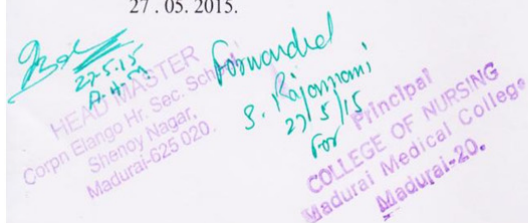 27 . 05. 2015.
27.5.15
A.H.M
HEAD MASTER
Corpn Elango Hr. Sec. School
Shenoy Nagar,
Madurai-625 020.
Forwarded
S. Rajamani
27/5/15
For
Principal
COLLEGE OF NURSING
Madurai Medical College
Madurai-20.